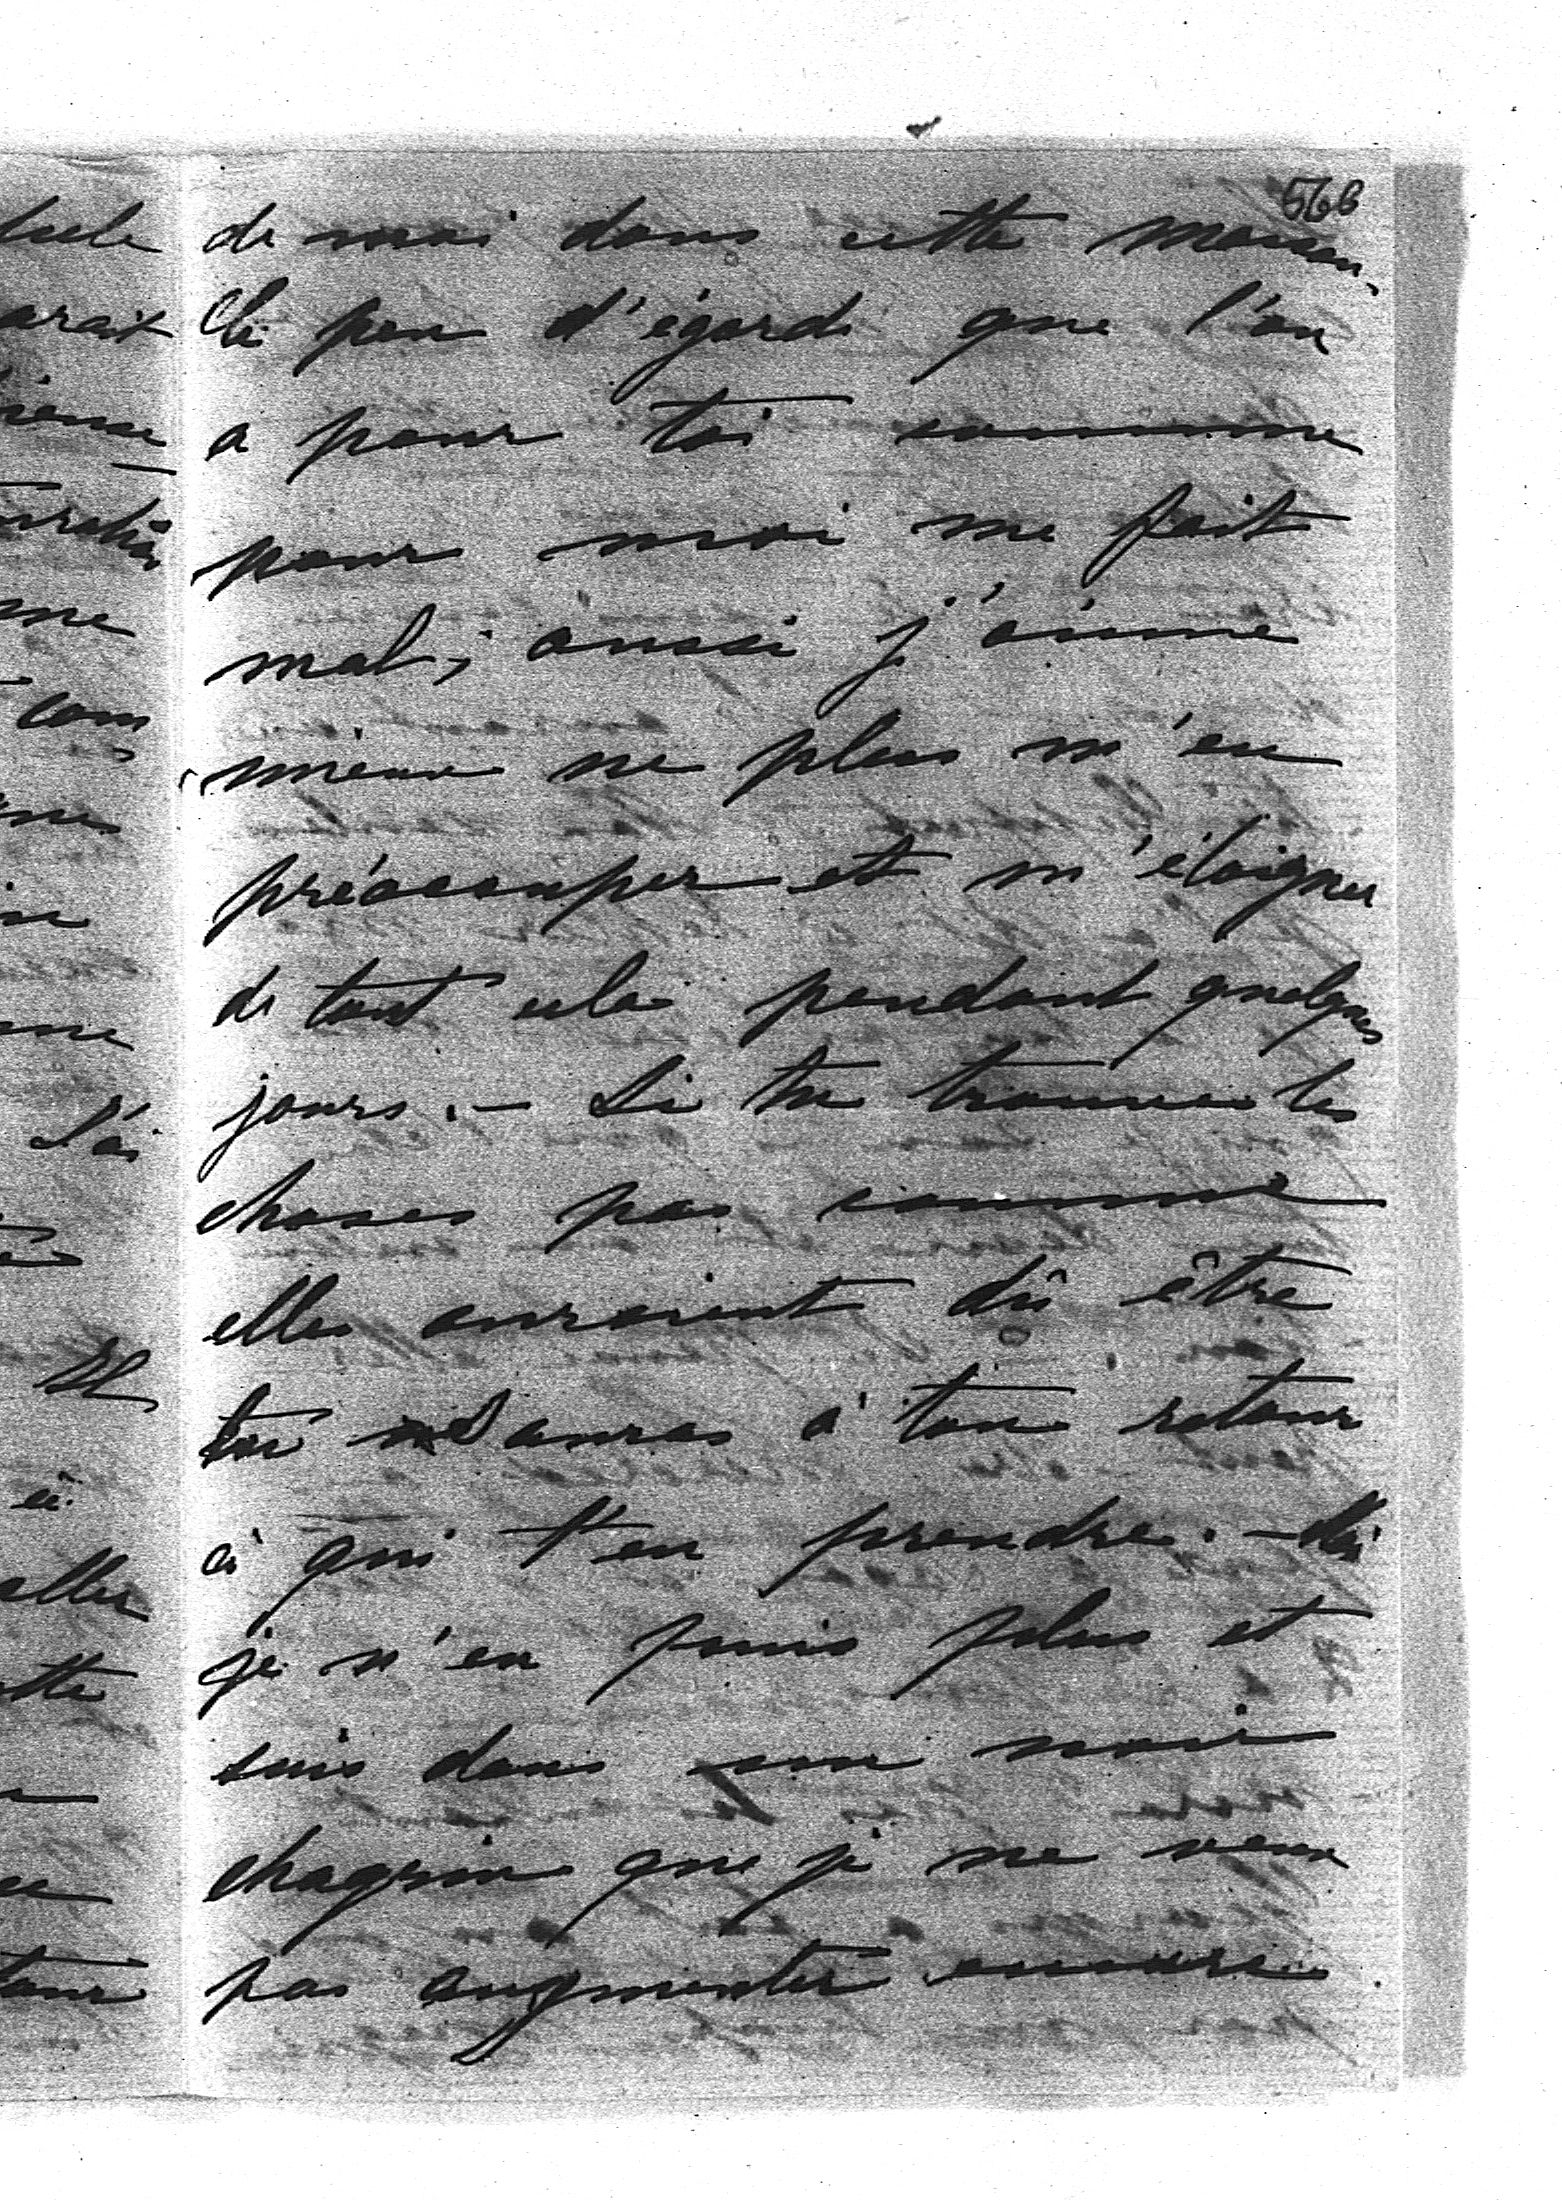 566
de moi dans cette maison,
le peu d'égards que l'on
a pour toi comme
pour moi me fait
mal; aussi j'aime
mieux ne plus m'en
préoccuper et m'éloigner
de tout cela pendant quelques
jours. — Si tu trouves les
choses pas comme
elles auraient dû être
tu sauras à ton retour
à qui t'en prendre. — Moi
je n'en puis plus et
suis dans un noir
chagrin que je ne veux
pas augmenter encore.